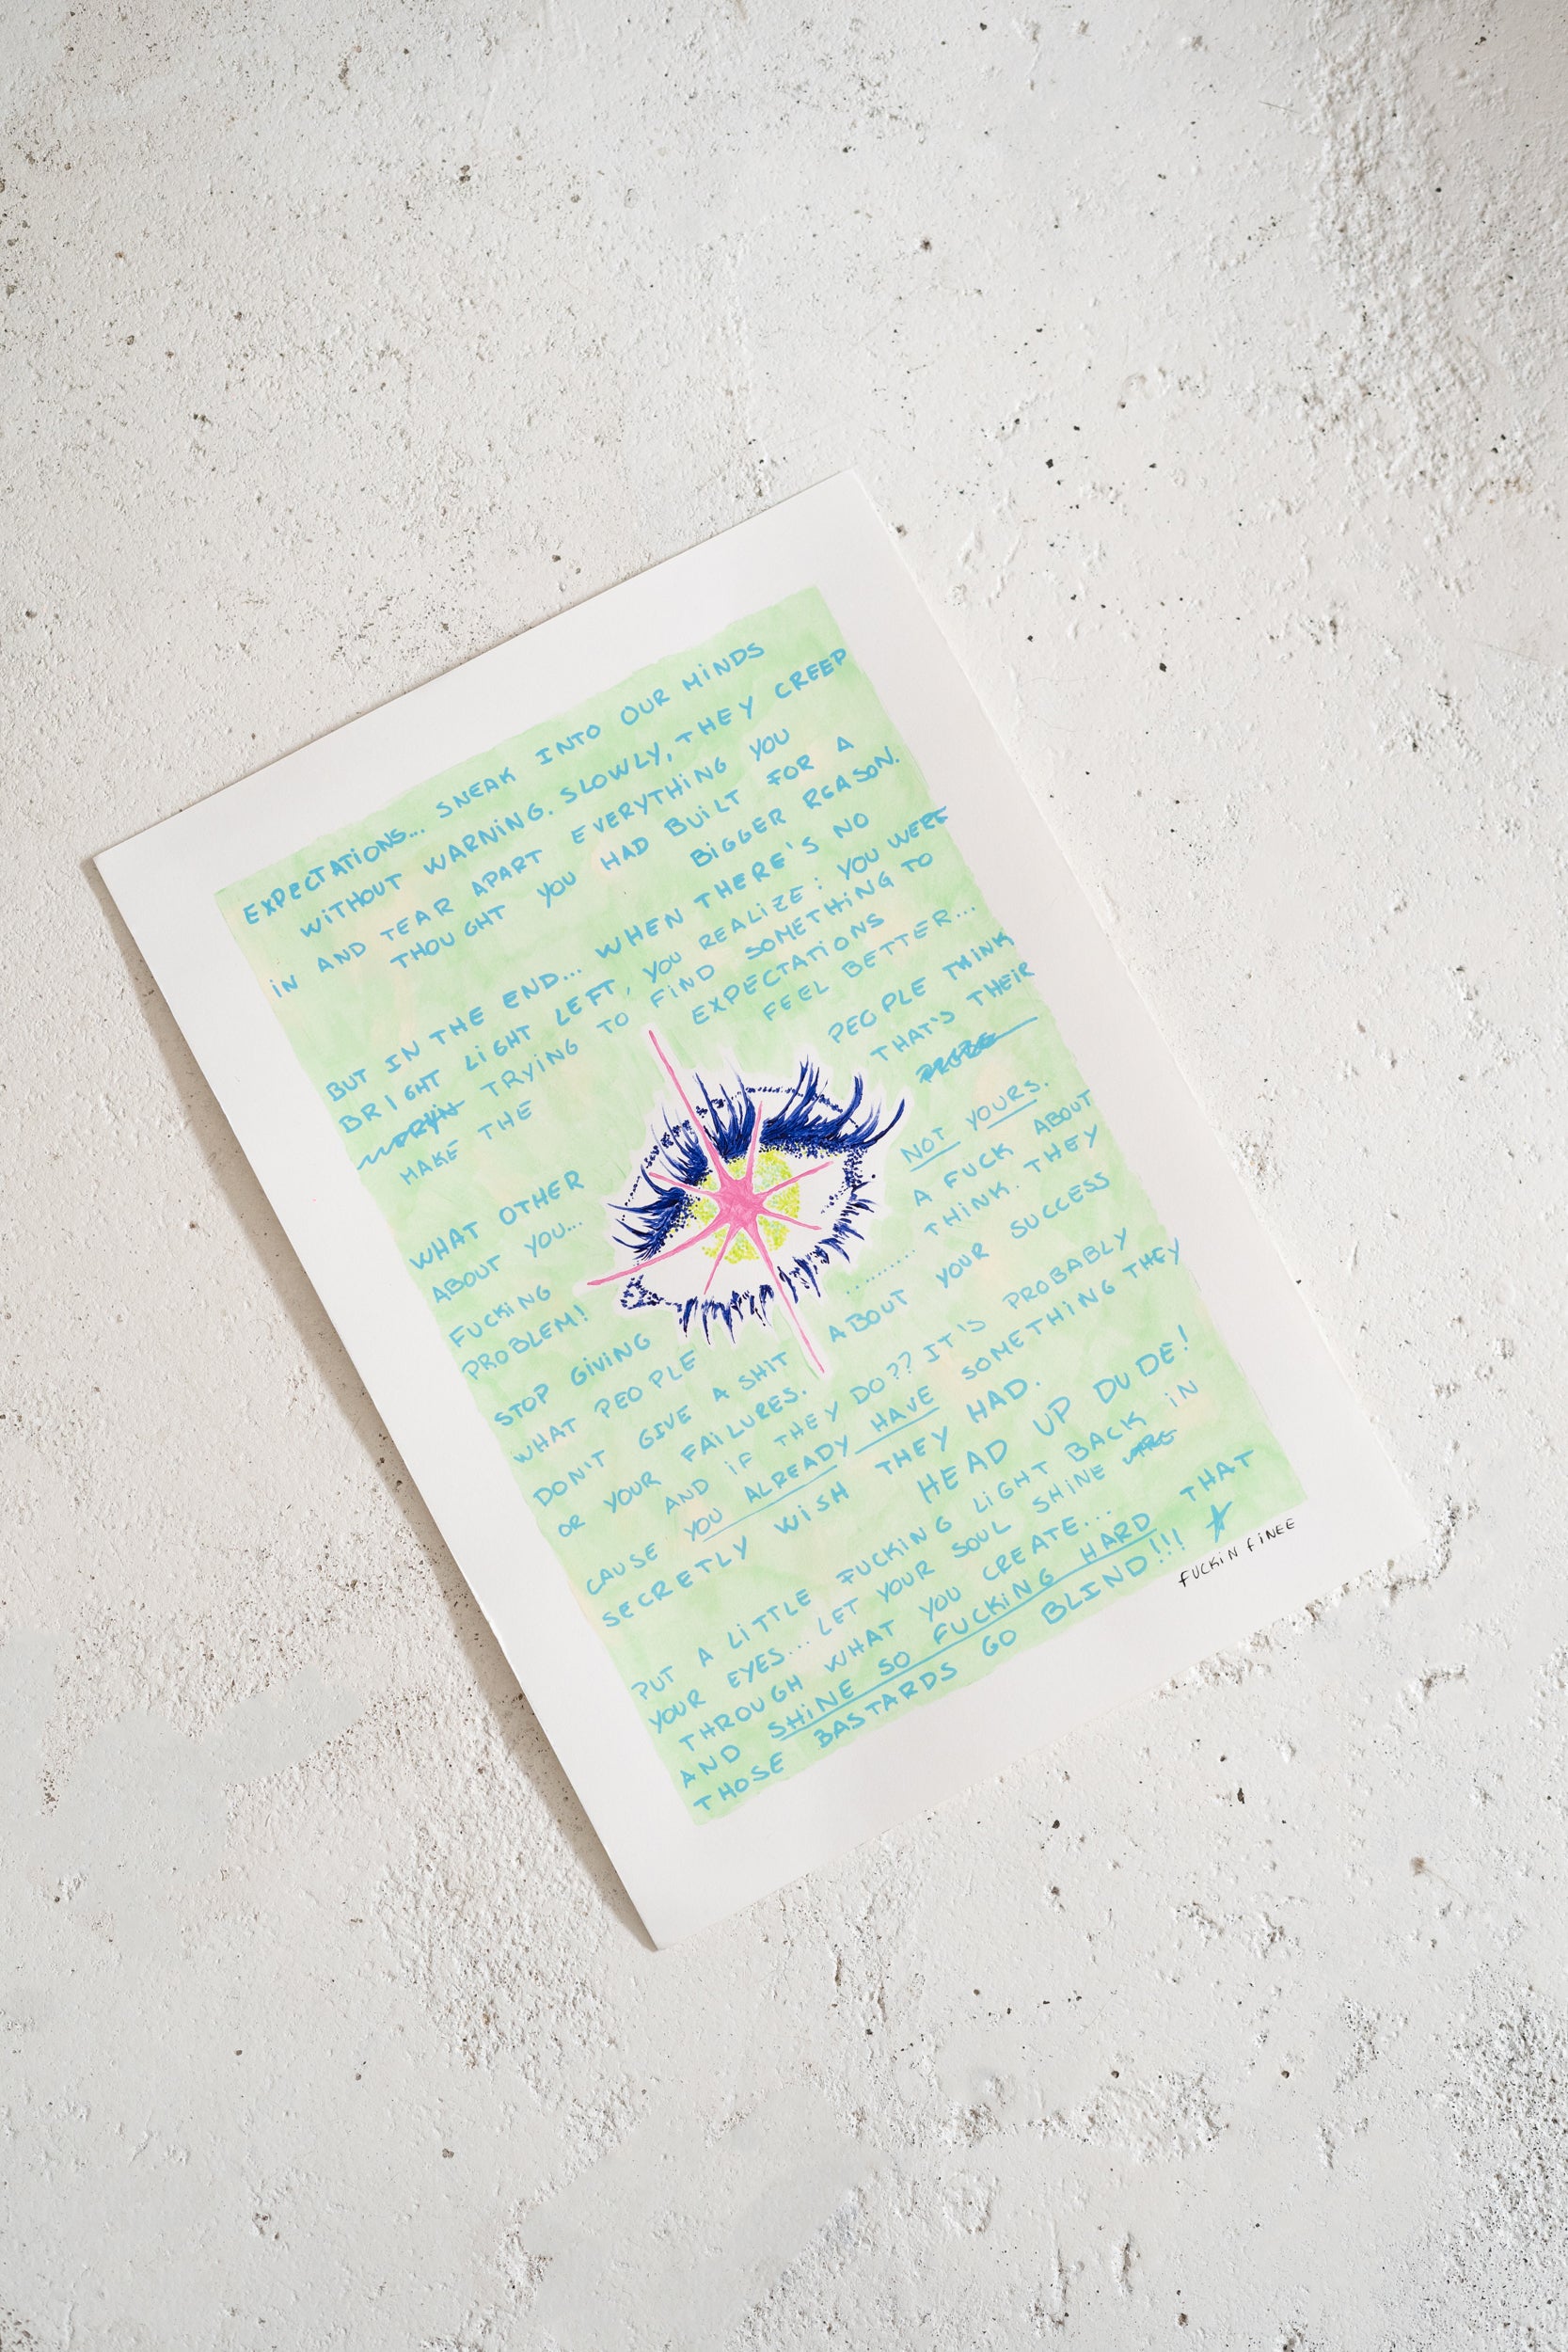 EXPECTATIONS... SNEAK INTO OUR MINDS
WITHOUT WARNING. SLOWLY, THEY CREEP
IN AND TEAR APART EVERYTHING YOU
THOUGHT YOU HAD BUILT FOR A
BIGGER REASON.
BUT IN THE END... WHEN THERE'S NO
BRIGHT LIGHT LEFT, YOU REALIZE: YOU WERE
TRYING TO FIND SOMETHING TO
MAKE THE EXPECTATIONS
FEEL BETTER...
WHAT OTHER PEOPLE THINK
ABOUT YOU... THAT'S THEIR
FUCKING
PROBLEM! NOT YOURS.
STOP GIVING A FUCK ABOUT
WHAT PEOPLE .......... THINK. THEY
DON'T GIVE A SHIT ABOUT YOUR SUCCESS
OR YOUR FAILURES.
AND IF THEY DO?? IT'S PROBABLY
CAUSE YOU ALREADY HAVE SOMETHING THEY
SECRETLY WISH THEY HAD.
HEAD UP DUDE!
PUT A LITTLE FUCKING LIGHT BACK IN
YOUR EYES... LET YOUR SOUL SHINE
THROUGH WHAT YOU CREATE...
AND SHINE SO FUCKING HARD THAT
THOSE BASTARDS GO BLIND!!!
FUCKIN FINEE